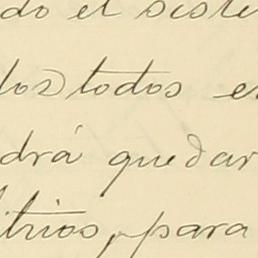 do el siste
los todos e
drá quedar
itrios, para